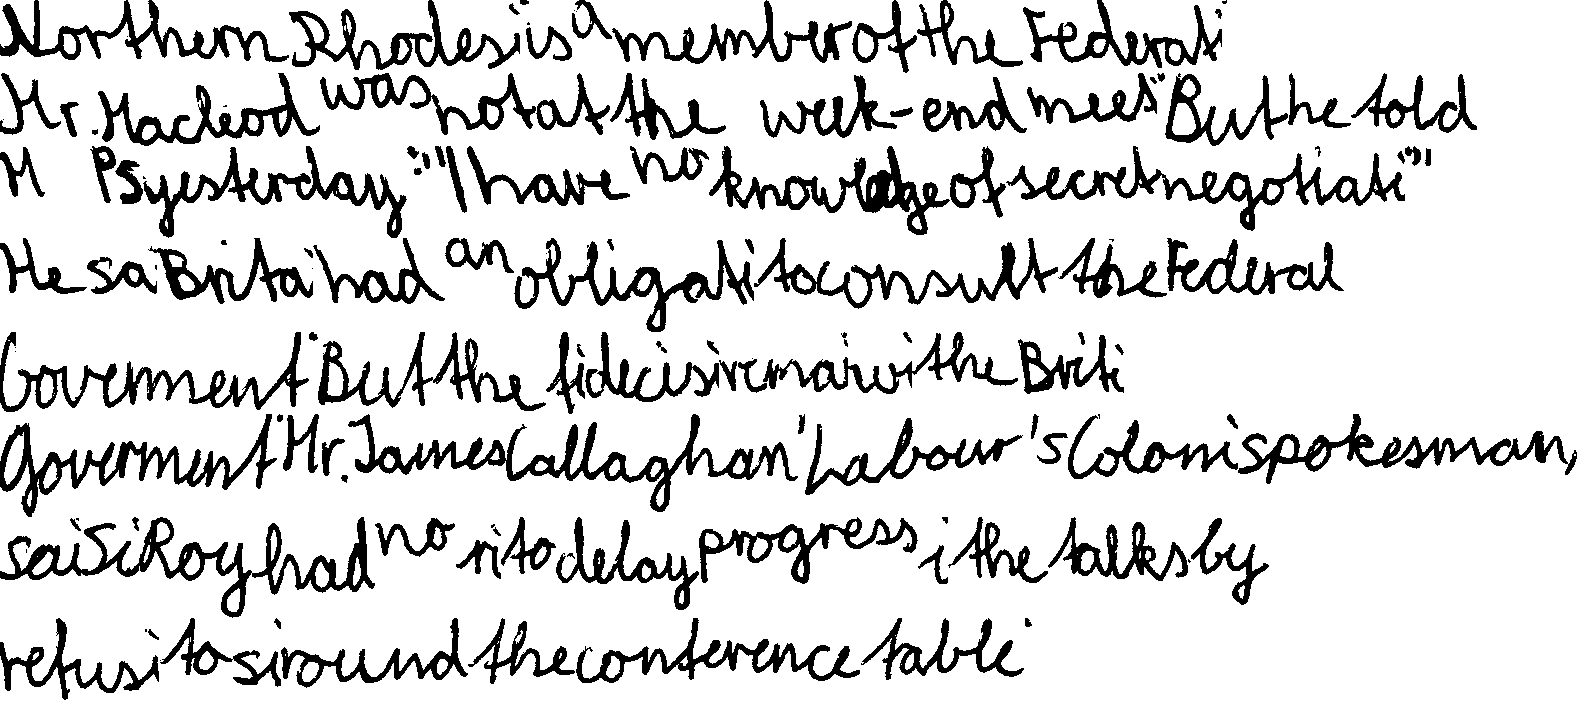 Northern Rhodesi is a member of the Federati
Mr. Macleod was not at the week-end meet. But he told
M Ps yesterday: "I have no knowledge of secret negotiati."
He sa Brita had an obligati to consult the Federal
Government. But the fi decisi remai wi the Briti
Government. Mr. James Callaghan, Labour's Coloni spokesman,
sai Si Roy had no ri to delay progress i the talks by
refusi to si round the conference table.